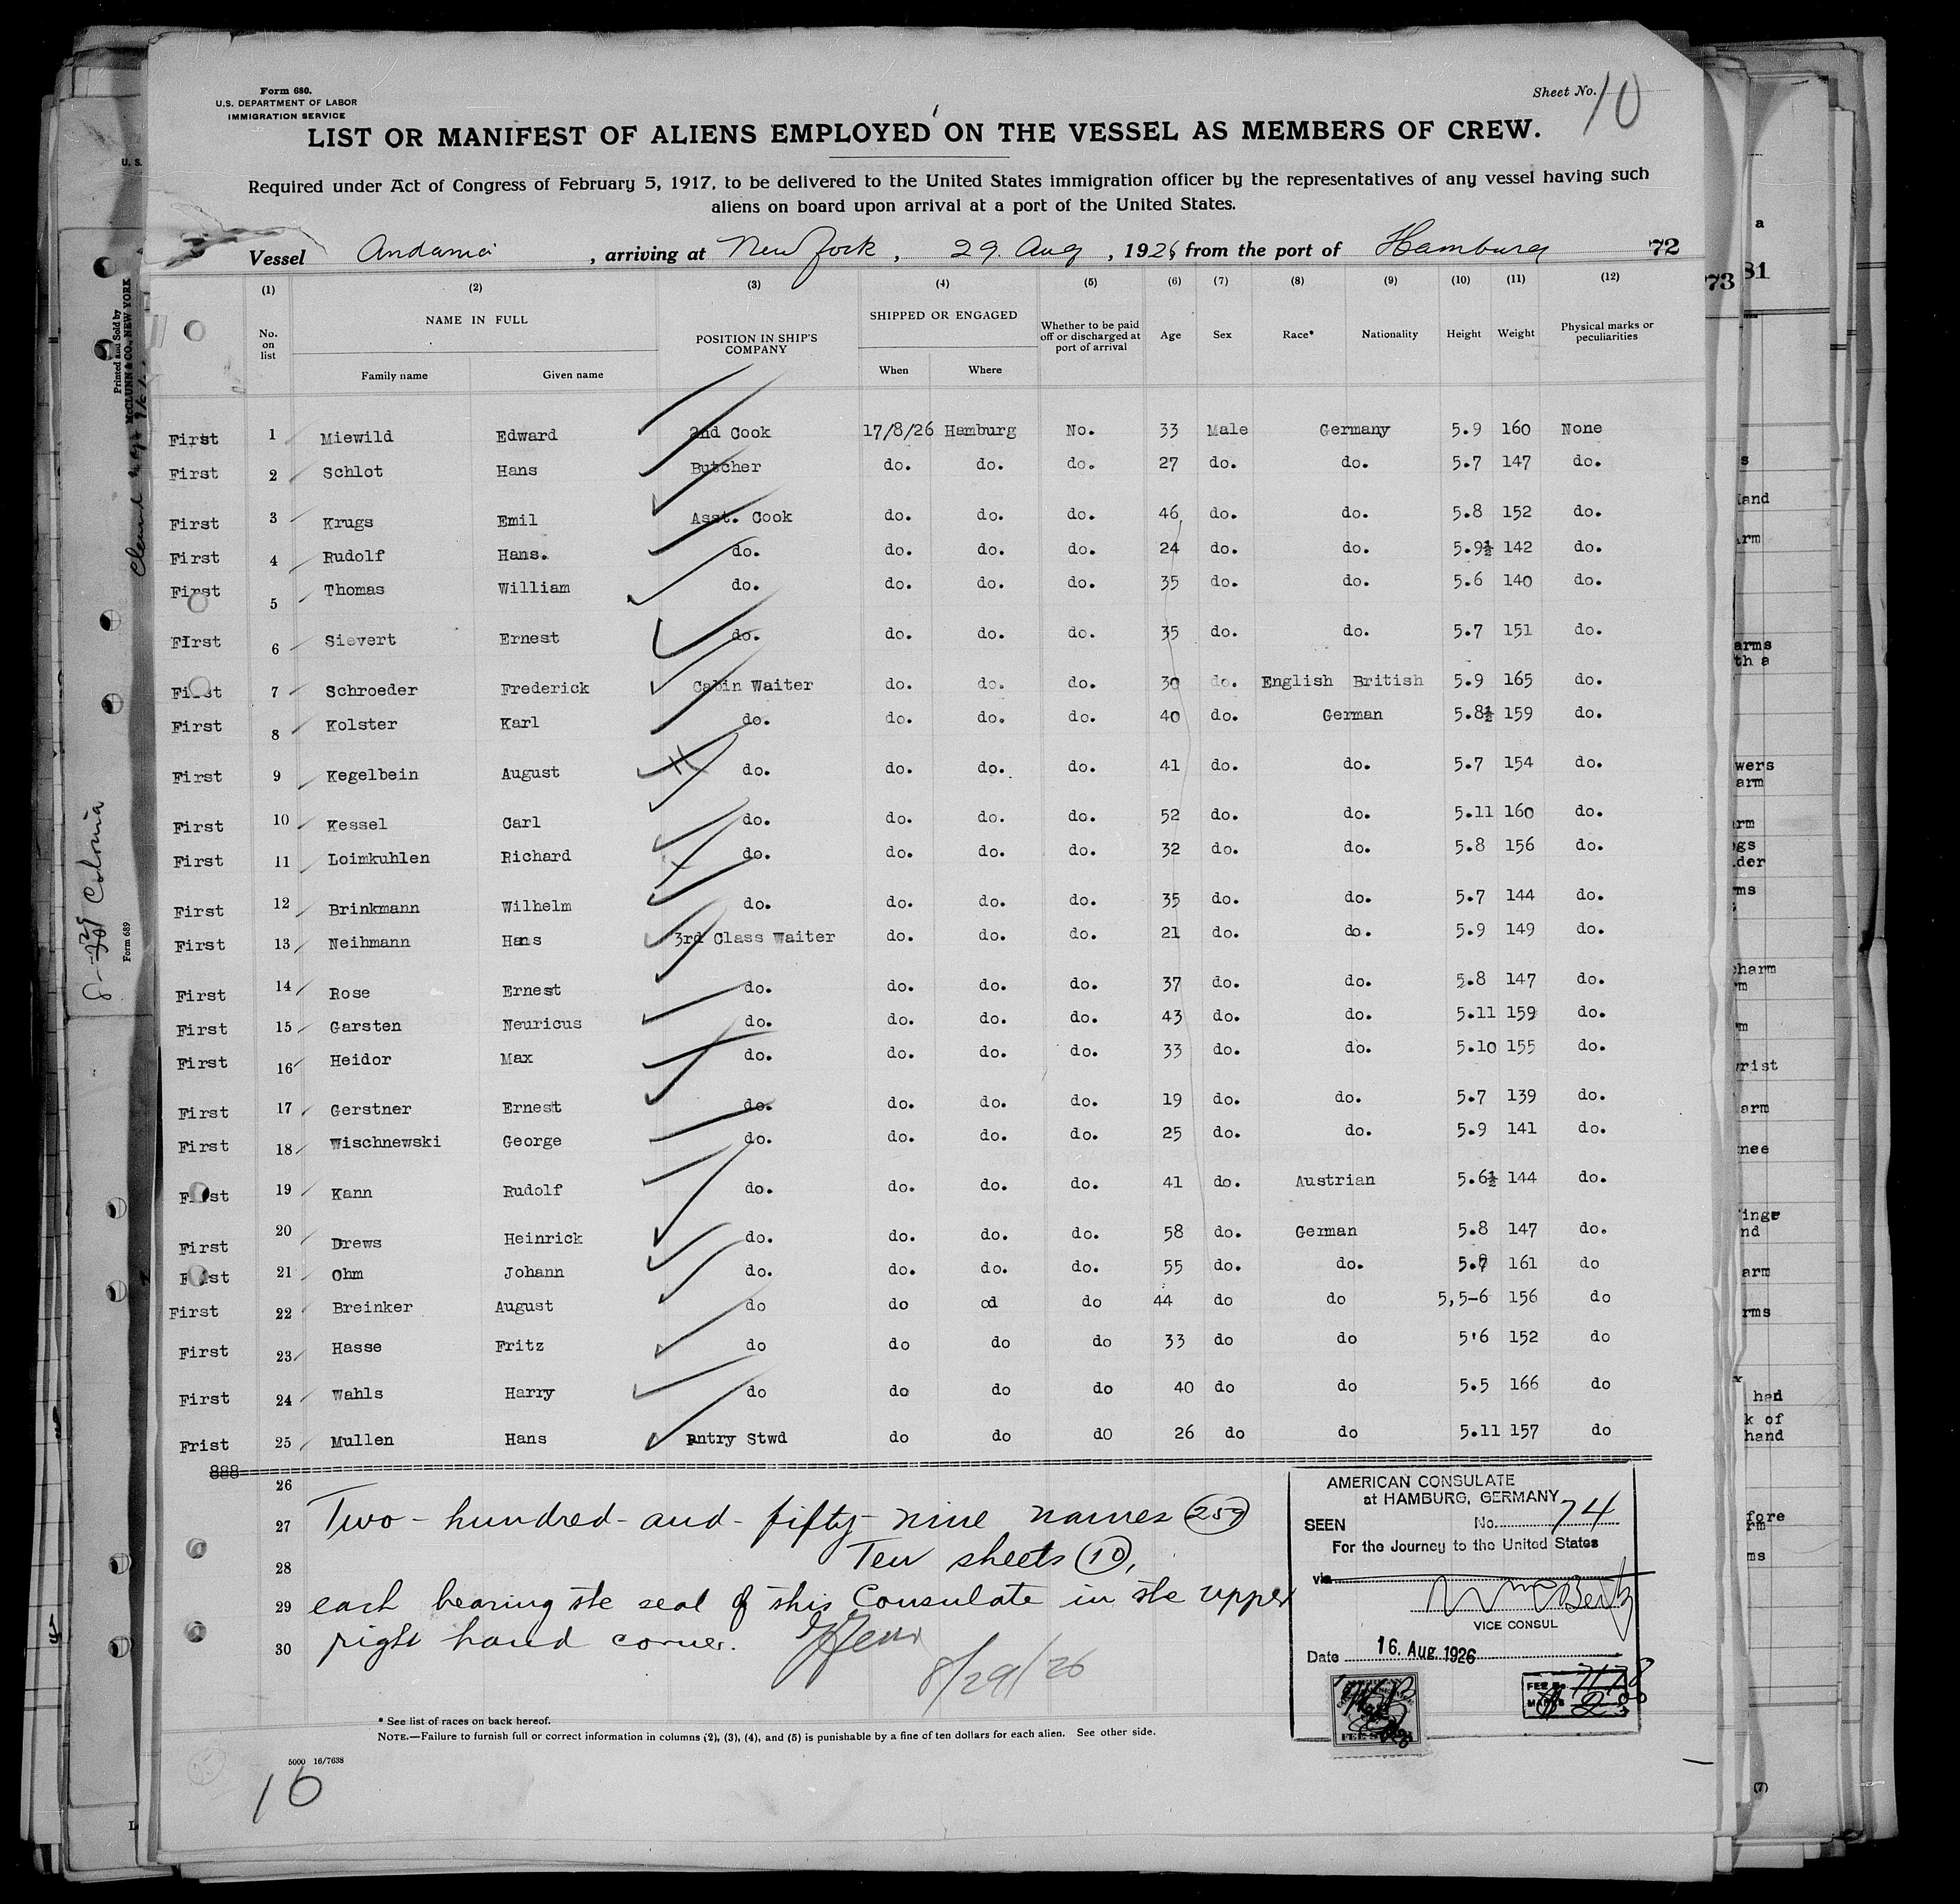 Form 680.
U.S. DEPARTMENT OF LABOR
IMMIGRATION SERVICE
Sheet No. 10
LIST OR MANIFEST OF ALIENS EMPLOYED ON THE VESSEL AS MEMBERS OF CREW.
Required under Act of Congress of February 5, 1917, to be delivered to the United States immigration officer by the representatives of any vessel having such
aliens on board upon arrival at a port of the United States.
Vessel Andania, arriving at New York, 29. Aug, 1926 from the port of Hamburg 72
(1) (2) (3) (4) (5) (6) (7) (8) (9) (10) (11) (12)
No. on list NAME IN FULL Family name Given name POSITION IN SHIP'S COMPANY SHIPPED OR ENGAGED When Where Whether to be paid off or discharged at port of arrival Age Sex Race* Nationality Height Weight Physical marks or peculiarities
First 1 Miewild Edward 2nd Cook 17/8/26 Hamburg No. 33 Male Germany 5.9 160 None
First 2 Schlot Hans Butcher do. do. do. 27 do. do. 5.7 147 do.
First 3 Krugs Emil Asst. Cook do. do. do. 46 do. do. 5.8 152 do.
First 4 Rudolf Hans. do. do. do. do. 24 do. do. 5.9½ 142 do.
First 5 Thomas William do. do. do. do. 35 do. do. 5.6 140 do.
FIrst 6 Sievert Ernest do. do. do. do. 35 do. do. 5.7 151 do.
First 7 Schroeder Frederick Cabin Waiter do. do. do. 30 do. English British 5.9 165 do.
First 8 Kolster Karl do. do. do. do. 40 do. German 5.8½ 159 do.
First 9 Kegelbein August do. do. do. do. 41 do. do. 5.7 154 do.
First 10 Kessel Carl do. do. do. do. 52 do. do. 5.11 160 do.
First 11 Loimkuhlen Richard do. do. do. do. 32 do. do. 5.8 156 do.
First 12 Brinkmann Wilhelm do. do. do. do. 35 do. do. 5.7 144 do.
First 13 Neihmann Hans 3rd Class Waiter do. do. do. 21 do. do. 5.9 149 do.
First 14 Rose Ernest do. do. do. do. 37 do. do. 5.8 147 do.
First 15 Garsten Neuricus do. do. do. do. 43 do. do. 5.11 159 do.
First 16 Heidor Max do. do. do. do. 33 do. do. 5.10 155 do.
First 17 Gerstner Ernest do. do. do. do. 19 do. do. 5.7 139 do.
First 18 Wischnewski George do. do. do. do. 25 do. do. 5.9 141 do.
First 19 Kann Rudolf do. do. do. do. 41 do. Austrian 5.6½ 144 do.
First 20 Drews Heinrick do. do. do. do. 58 do. German 5.8 147 do.
First 21 Ohm Johann do. do. do. do. 55 do. do. 161 do
First 22 Breinker August do do od do 44 do do 5,5-6 156 do
First 23 Hasse Fritz do do do do 33 do do 5'6 152 do
First 24 Wahls Harry do do do do 40 do do 5.5 166 do
Frist 25 Mullen Hans Pntry Stwd do do dO 26 do do 5.11 157 do
888
26
27 Two-hundred-and-fifty-nine names (259)
28 Ten sheets (10),
29 each bearing the seal of this Consulate in the upper
30 right hand corner.
8/29/26
AMERICAN CONSULATE
at HAMBURG, GERMANY
SEEN No. 74
For the Journey to the United States
via
VICE CONSUL
Date 16. Aug. 1926
FEE No. 7178
MARKS
* See list of races on back hereof.
NOTE.—Failure to furnish full or correct information in columns (2), (3), (4), and (5) is punishable by a fine of ten dollars for each alien. See other side.
5000 16/7638
10
U. S.
Printed and Sold by
McCLUNN & CO., NEW YORK
Colonia
Form 689
73
81
a
arms
th a
arm
charm
wrist
arm
nee
arm
had
k of
hand
(7)